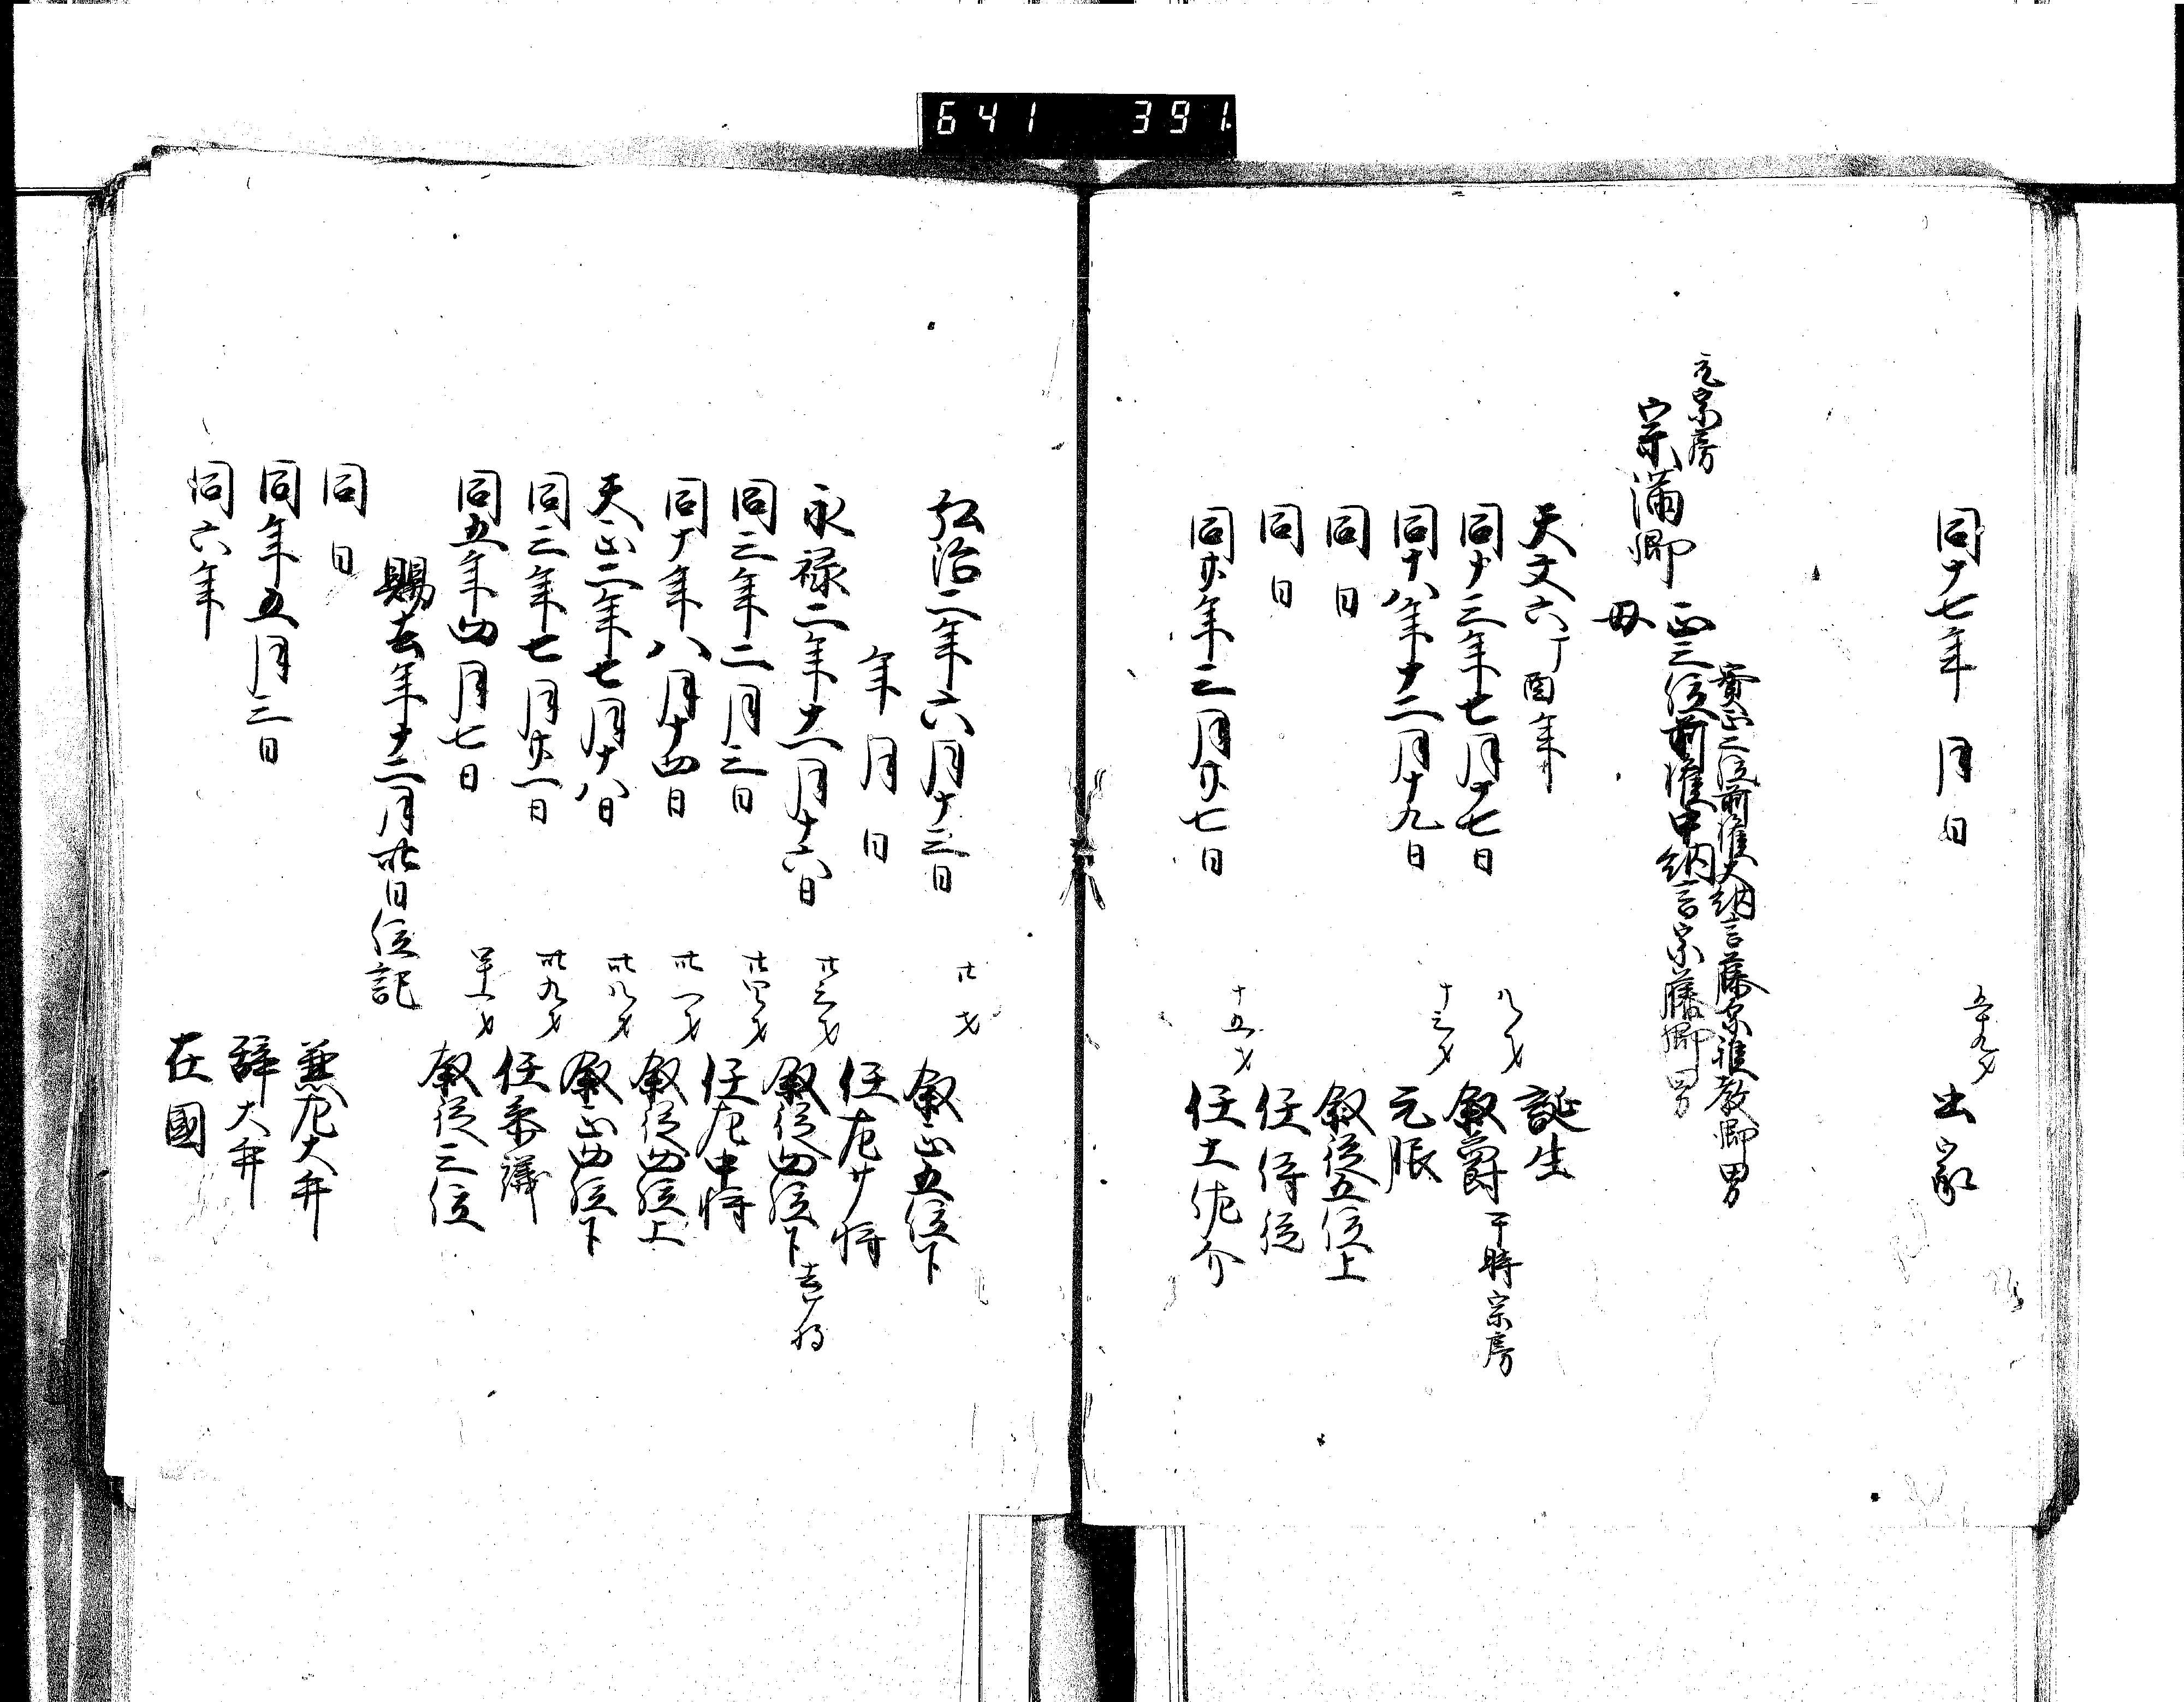 641 391
同十七年 月 日 五十九才 出家
元宗房
宗満卿 正三位前権中納言宗藤卿男
実正二位前権大納言藤原雅教卿男
母
天文六丁酉年 誕生
同十三年七月十七日 八才 叙爵 于時宗房
同十八年十二月十九日 十三才 元服
同日 叙従五位上
同日 任侍従
同廿年三月廿七日 十五才 任土佐介
弘治二年六月十三日 廿才 叙正五位下
年月日 任左少将
永禄二年十一月十六日 廿三才 叙従四位下
同三年二月三日 廿四才 任左中将
同十年八月十四日 卅一才 叙従四位上
天正二年七月十八日 卅八才 叙正四位下
同三年七月廿一日 卅九才 任参議
同五年四月七日 四十一才 叙従三位
賜去年十二月卅日位記
同日 兼左大弁
同年五月三日 辞大弁
同六年 在國